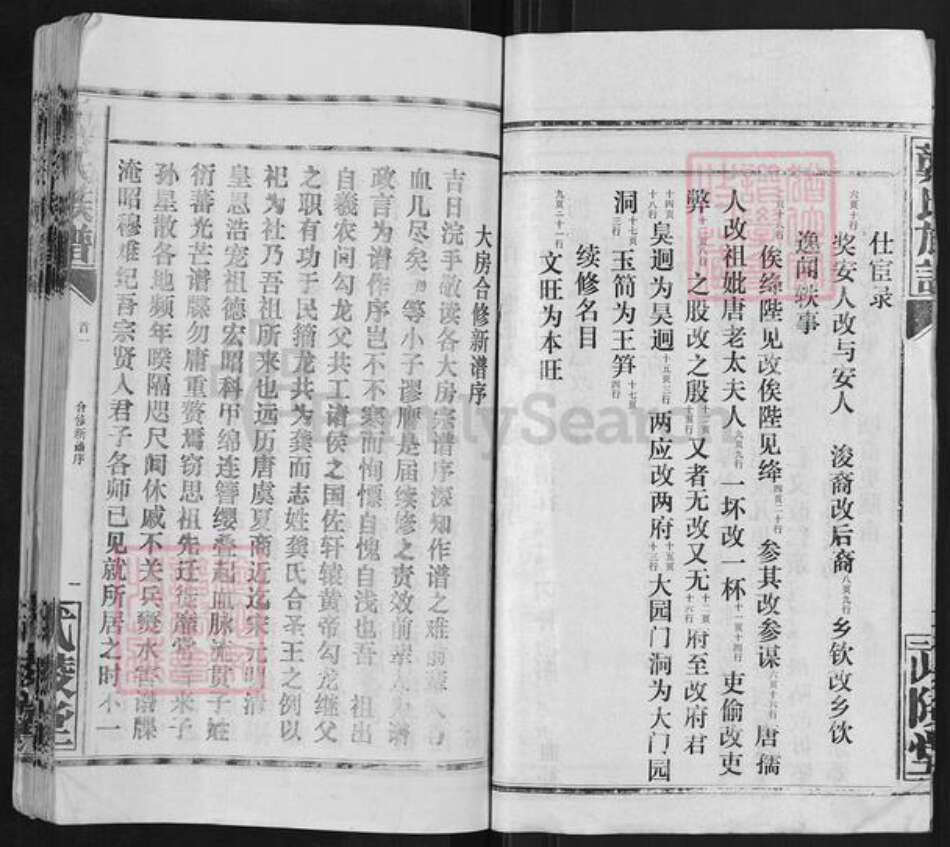 龚氏族谱
仕宦录
六页十行 奖安人改与安人 浚裔改后裔 八页九行 乡钦改乡饮
逸闻轶事
俟绛陛见改俟陛见绛 四页二十行 参其改参谋 六页十六行 唐孺
人改祖妣唐老太夫人 六页九行 一坏改一杯 十一页十四行 吏偷改吏
弊 之股改之殷 又者无改又无 十二页十六行 府至改府君
十四页十八行 昊迥为吴迥 十五页三行 两应改两府 十五页十三行 大园门洞为大门园
洞 十七页三行 玉简为王笋 十七页四行
续修名目
九页二十一行 文旺为本旺
武陵堂
族谱
首一
合修新谱序
一
武陵堂
大房合修新谱序
吉日浣手敬读各大房宗谱序深知作谱之难
血几尽矣 等小子谬膺是届续修之责效前辈
政言为谱作序岂不不寒而恂慄自愧自浅也吾 祖出
自羲农间勾龙父共工诸侯之国佐轩辕黄帝勾龙继父
之职有功于民箍龙共为龚而志姓龚氏合圣王之例以
祀为社乃吾祖所来也远历唐虞夏商近迄宋元明清
皇恩浩宠祖德宏昭科甲绵连簪缨叠起血脉流贯子姓
衍蕃光芒谱牒勿庸重赘焉窃思祖先迁徙靡常子来子
孙星散各地频年暌隔咫尺间休戚不关兵燹水害谱牒
淹昭穆难纪吾宗贤人君子各师已见就所居之时小一